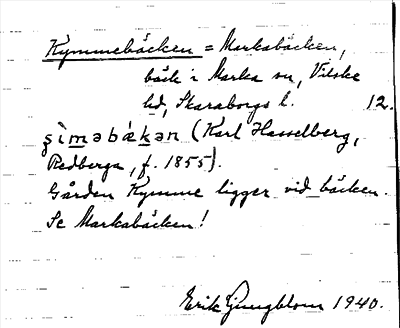 Kymmebäcken = Markabäcken,
bäck i Marka sn, Vilske
hd, Skaraborgs l. 12.
ʂìməbákən (Karl Hasselberg,
Redberga, f. 1855).
Gården Kymme ligger vid bäcken.
Se Markabäcken!
Erik Ljungblom 1940.